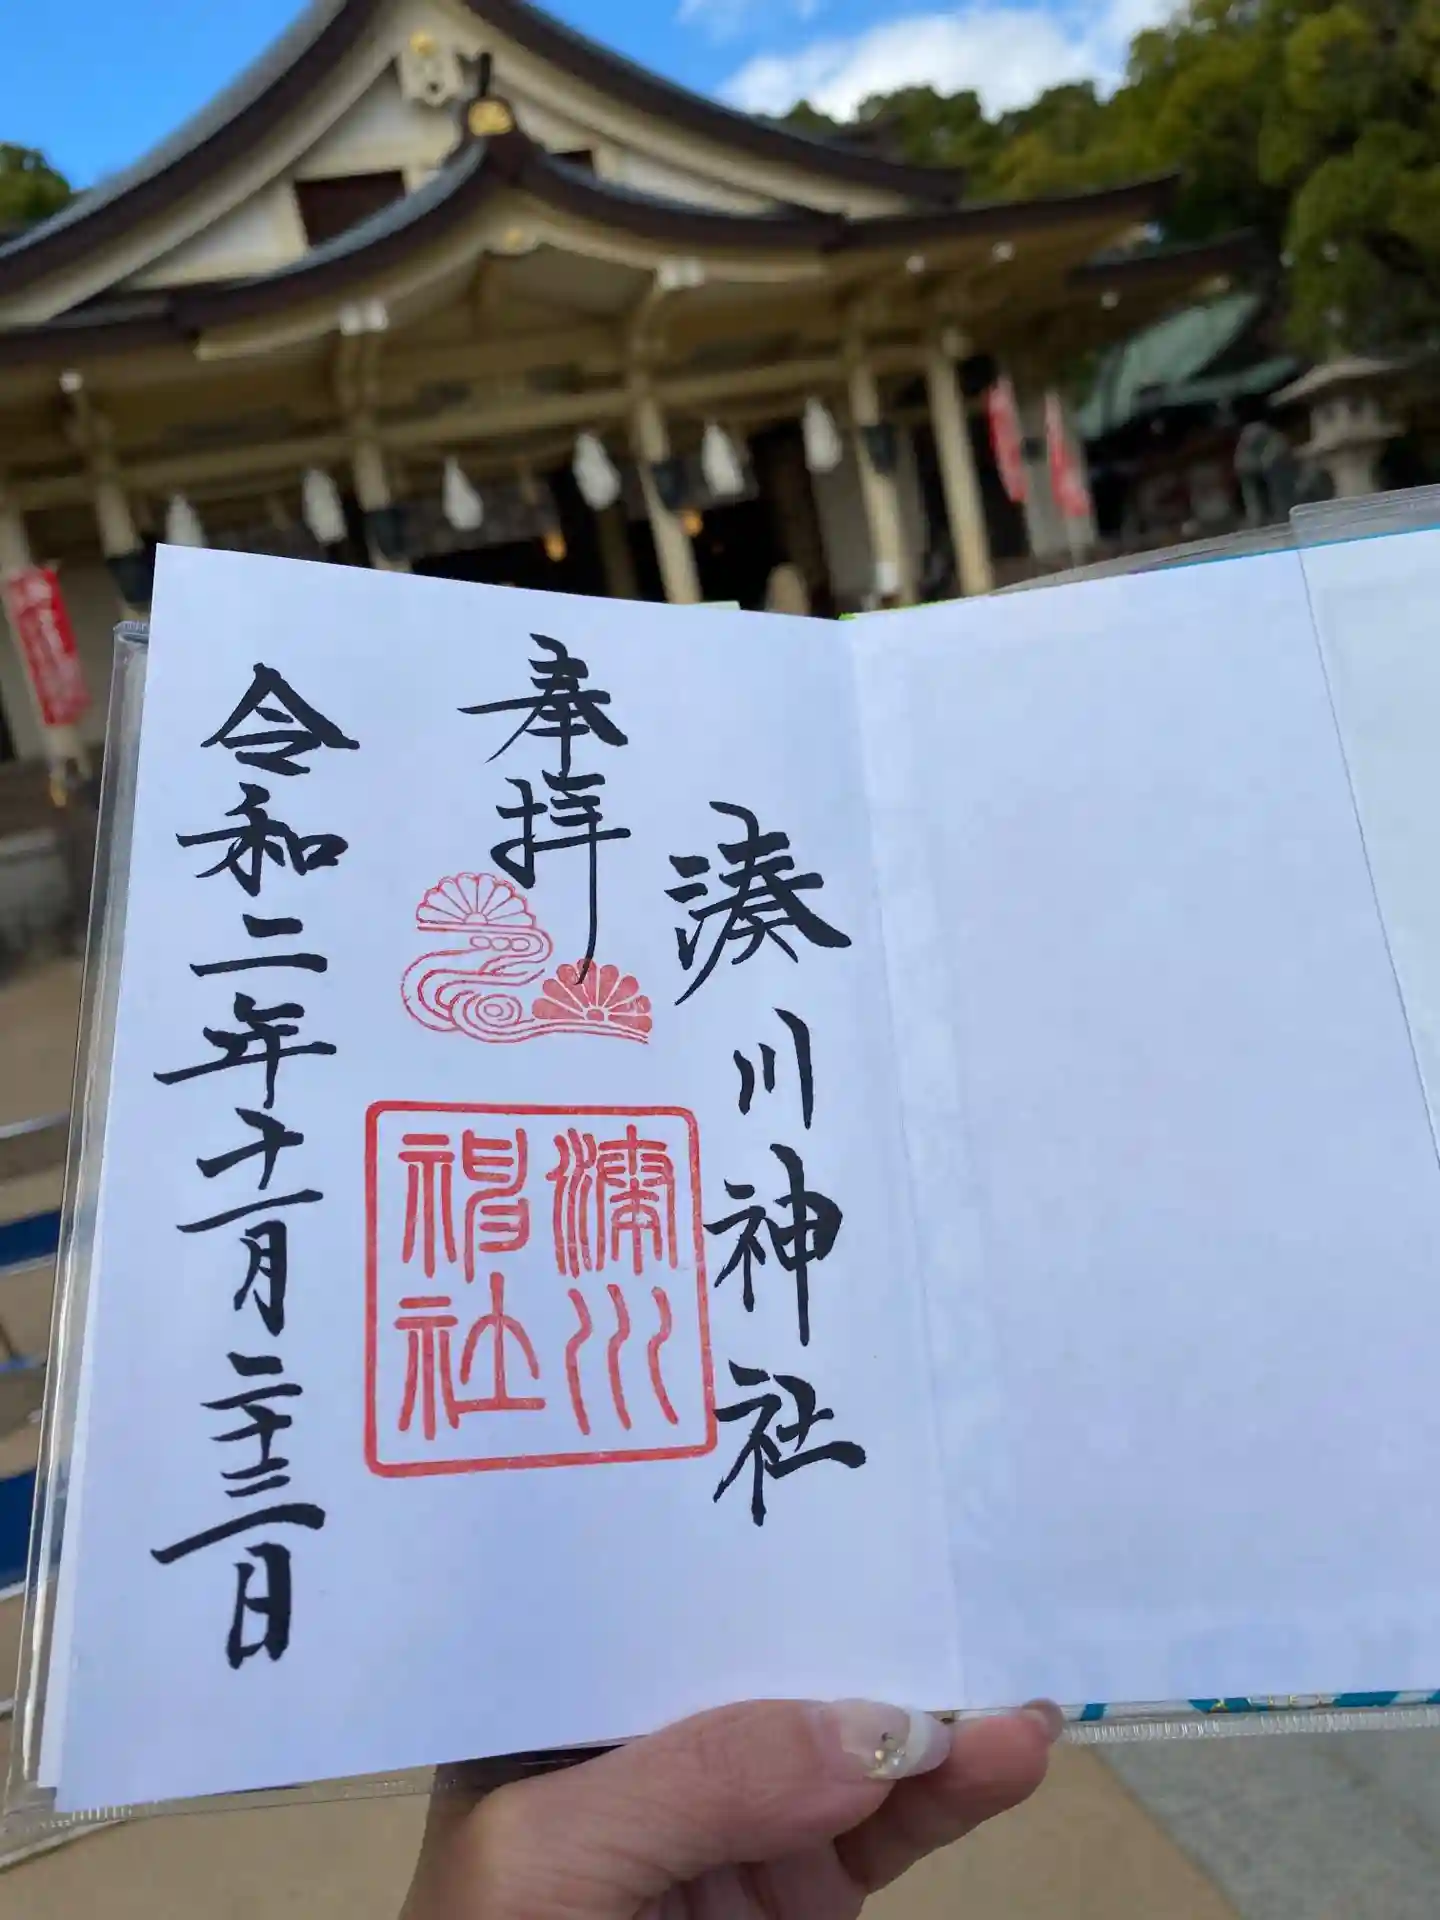 湊川神社
奉拝
湊川
神社
令和二年十一月二十三日